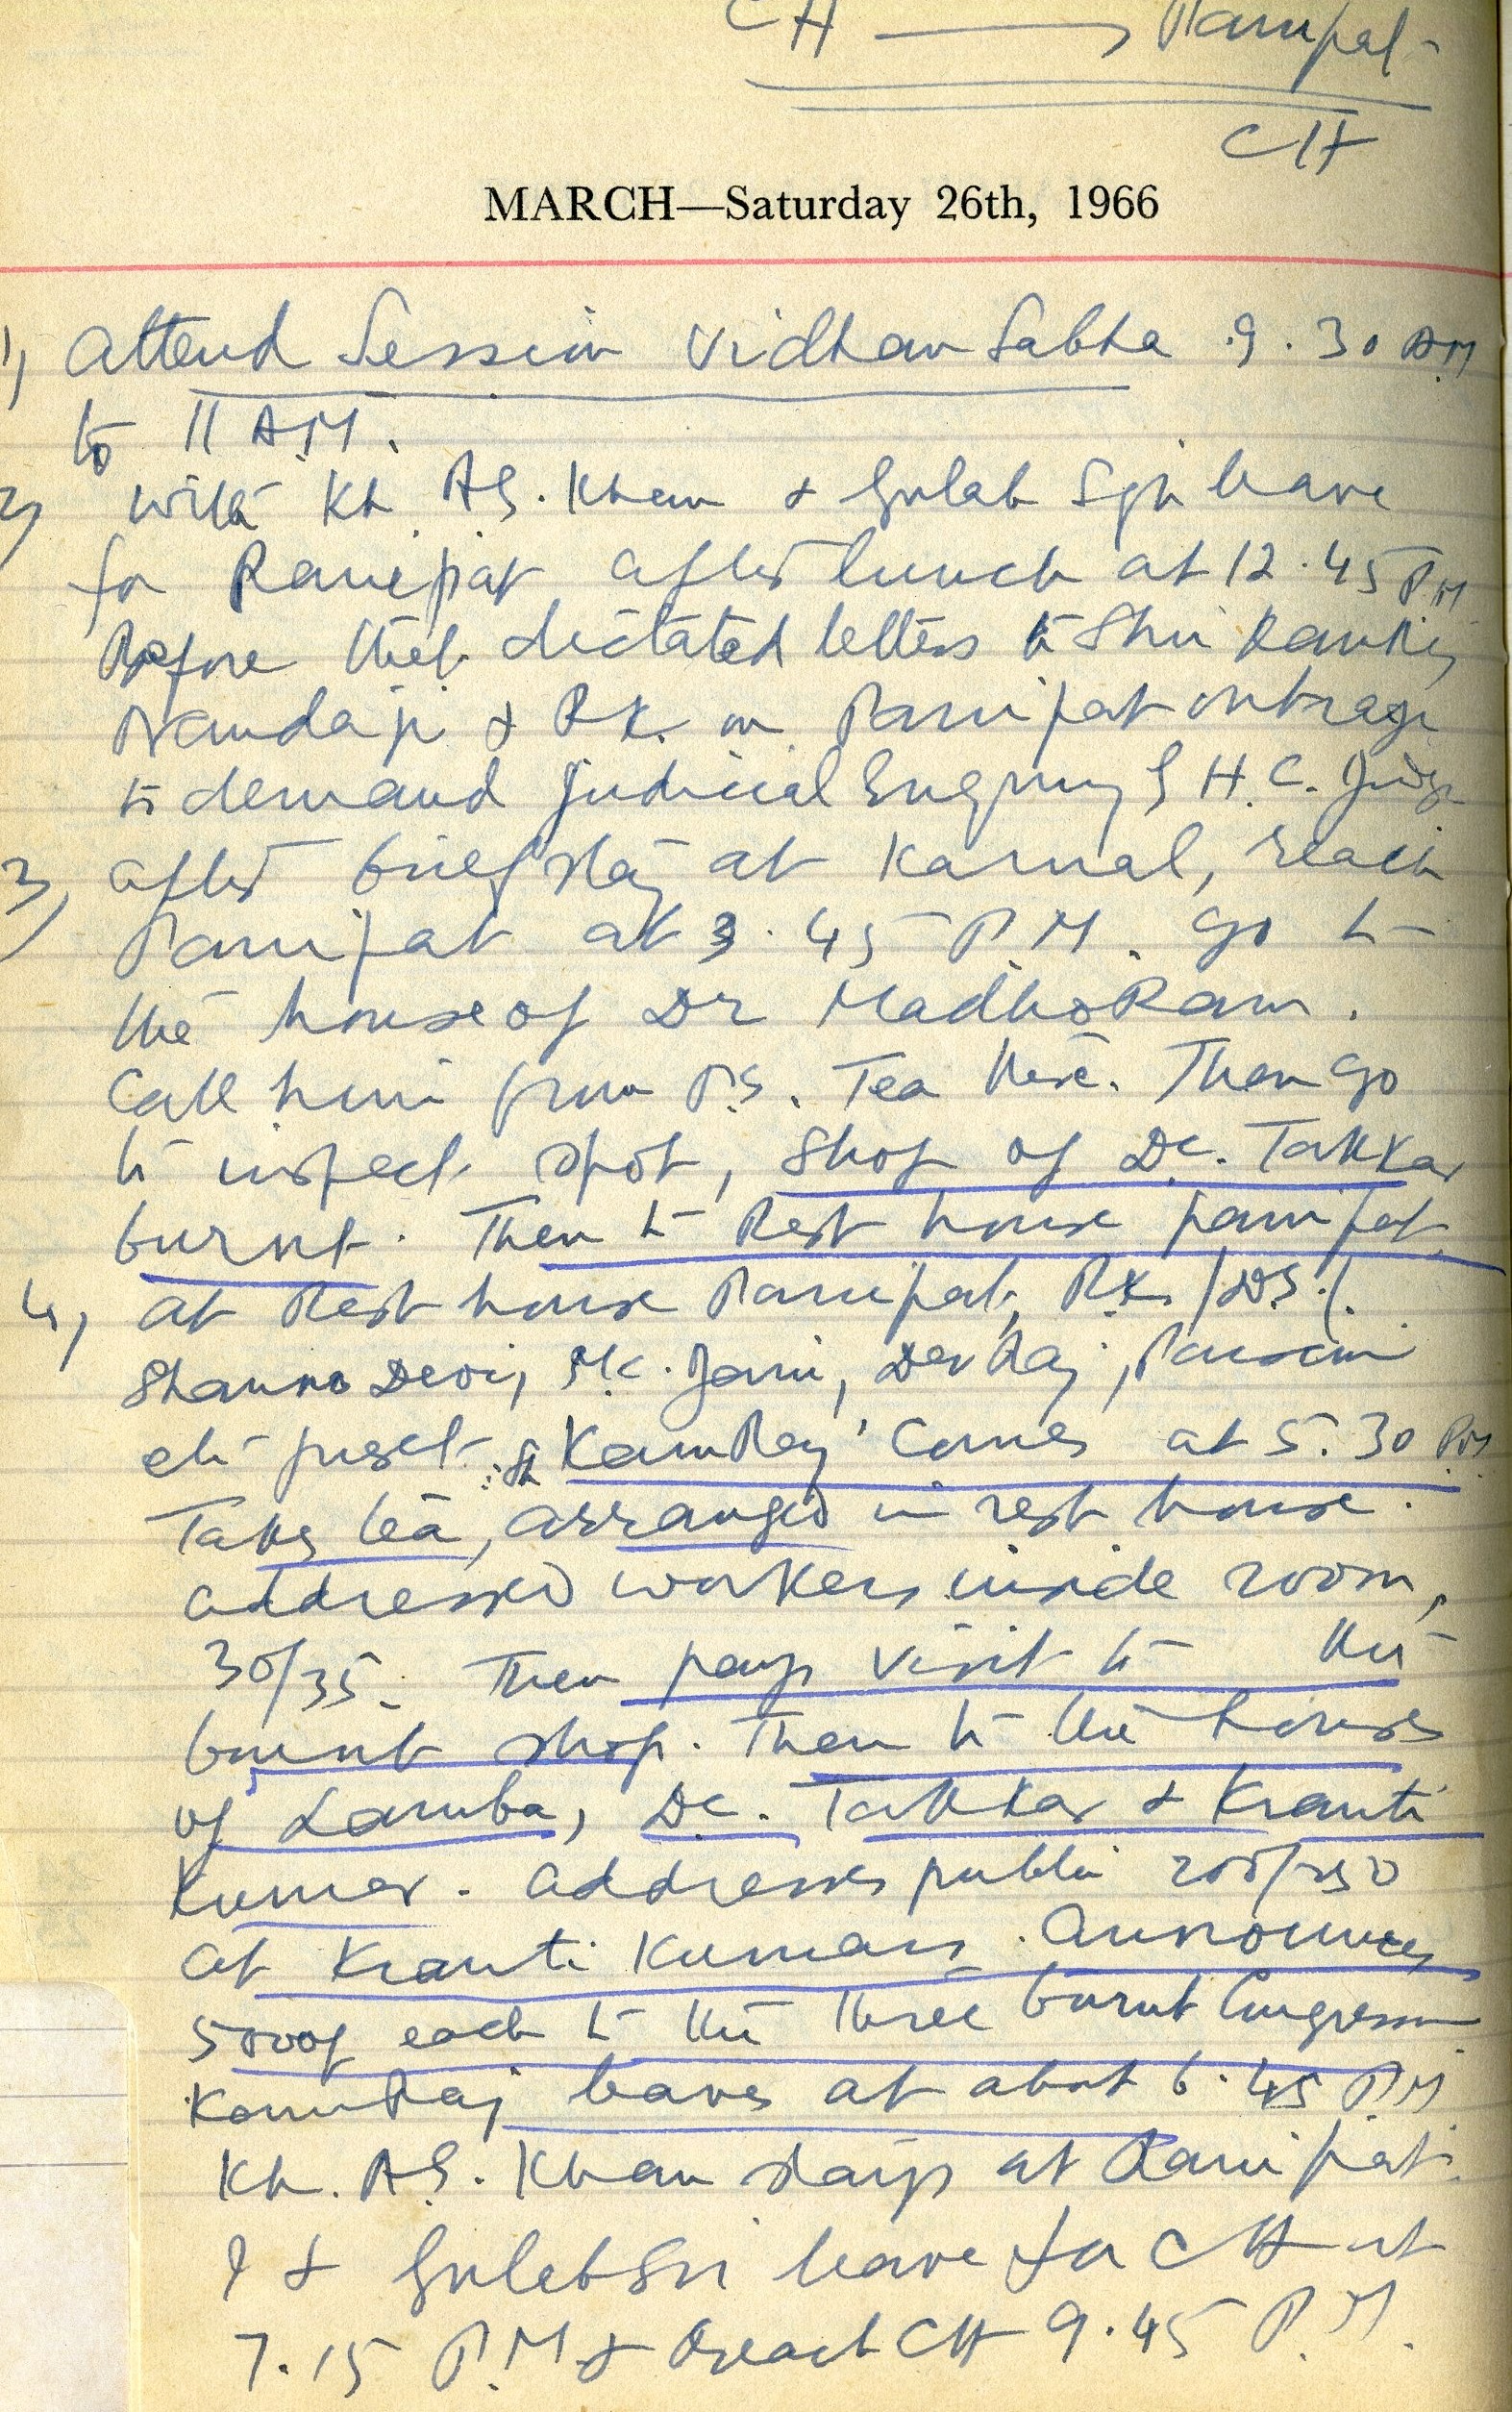 CH → Panipat -
CH
MARCH—Saturday 26th, 1966
1) Attend Session Vidhan Sabha 9.30 AM
to 11 AM.
2) with Kh. A.G. Khan & Gulab Sgh leave
for Panipat after lunch at 12.45 PM
Before that dictated letters to Shri Kamraj
Nandaji & R.K. on Panipat outrage
to demand judicial Enquiry by H.C. Judge
3) after brief stay at Karnal, reach
Panipat at 3.45 P.M. go to
the house of Dr Madho Ram.
Call him from P.S. Tea there. Then go
to inspect spot, Shop of D.C. Takkar
burnt. Then to Rest house panipat
4) at Rest house Panipat, R.K. / D.S. /
Shanno Devi, Jain, Dev Raj,
etc present. Sh KamRaj comes at 5.30 PM
Takes tea, arranged in rest house.
addressed workers inside room,
30/35. Then pays visit to the
burnt shop. Then to the houses
of Lamba, D.C. Takkar & Kranti
Kumar. addresses public 200/250
at Kranti Kumars. announces
5000/ each to the three burnt Congressmen
KamRaj leaves at about 6.45 P.M.
Kh. A.G. Khan stays at Panipat.
I & Gulab Sgh leave for CH at
7.15 P.M & reach CH 9.45 P.M.